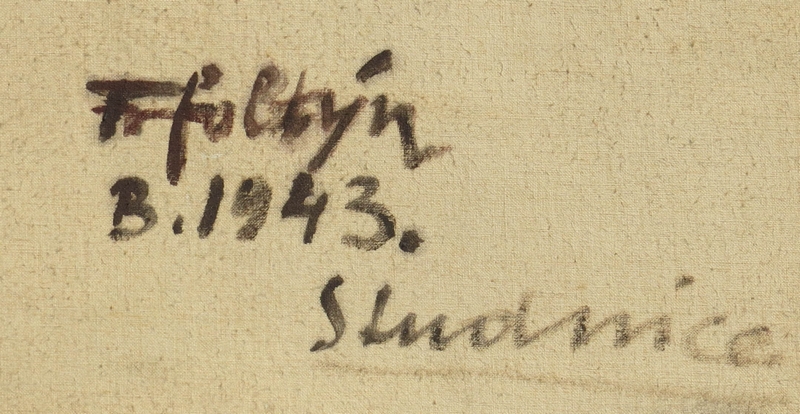 Fr foltýn
B. 1943.
Studnice